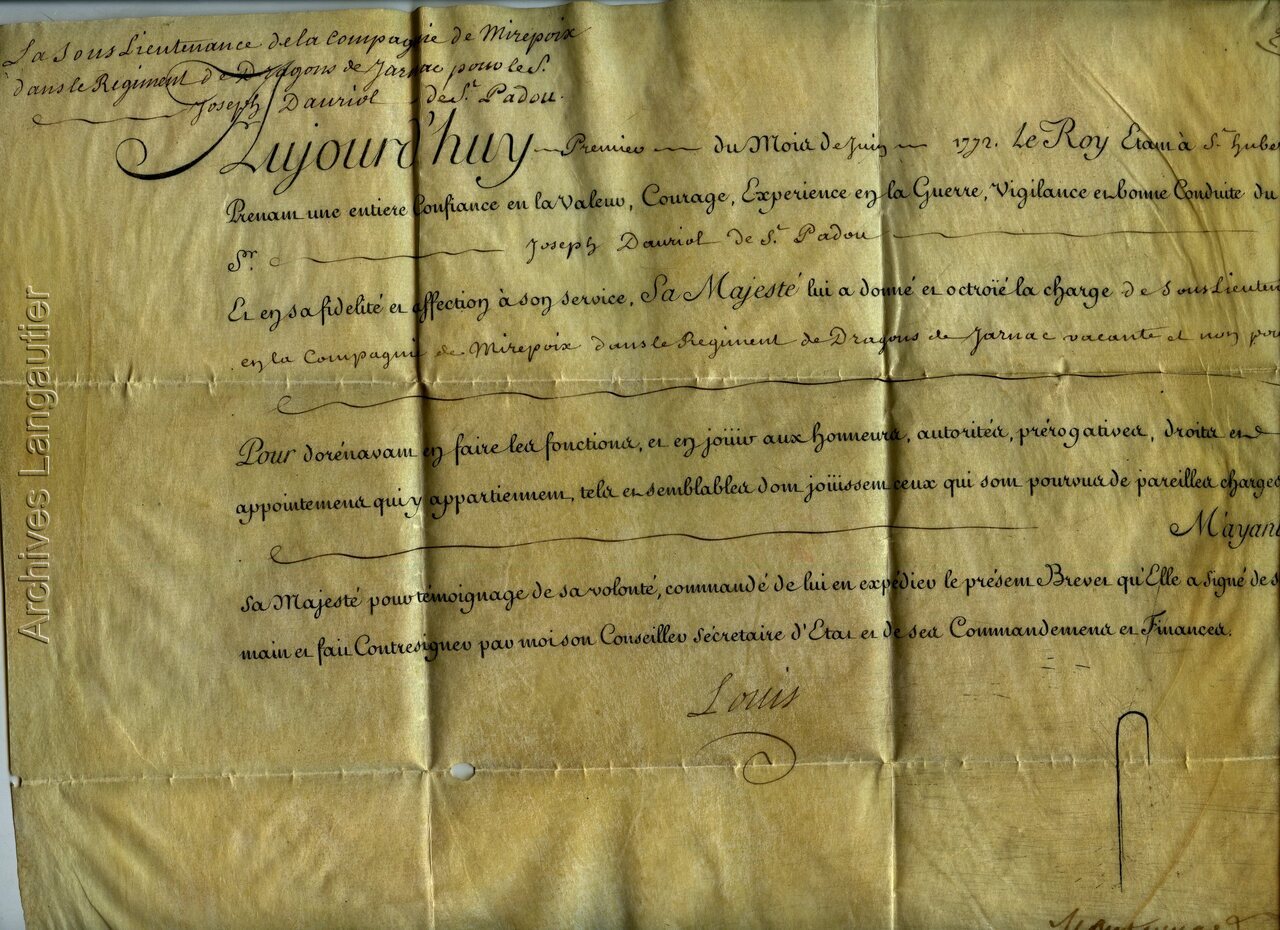 La Sous Lieutenance de la Compagnie de Mirepoix
dans le Régiment de Dragons de Jarnac pour le S.
Joseph Dauriol de St. Padou.
Aujourd'huy Premier du Mois de Juin 1772. Le Roy Etant à St. Huber
Prenant une entiere Confiance en la Valeur, Courage, Experience en la Guerre, Vigilance et bonne Conduite du
Sr. Joseph Dauriol de St. Padou
Et en sa fidelité et affection à son service, Sa Majesté lui a donné et octroïé la charge de Sous Lieuten
en la Compagnie de Mirepoix dans le Régiment de Dragons de Jarnac vacante et non pou
Pour dorénavant en faire les fonctions, et en joüir aux honneurs, autorités, prérogatives, droits et
appointemens qui y appartiennent, tels et semblables dont joüissent ceux qui sont pourvus de pareilles charges
M'ayant
Sa Majesté pour témoignage de sa volonté, commandé de lui en expédier le présent Brevet qu'Elle a signé de s
main et fait Contresigner par moi son Conseiller Sécretaire d'Etat et de ses Commandemens et Finances.
Louis
Archives Langautier